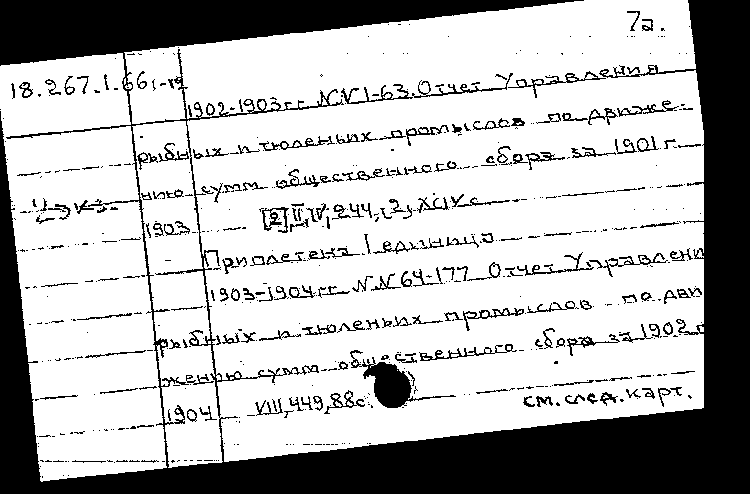 7а.
18.267.1.66 1-19
1902-1903гг. NN1-63. Отчет Управления
рыбных и тюленьих промыслов по движе-
нию сумм общественного сбора за 1901 г.
1903 [2], II, IV, 244, [2], XCIV с
Приплетена 1 единица
1903-1904гг. NN 64-177 Отчет Управлени
рыбных и тюленьих промыслов по дви
жению сумм общественного сбора за 1902 г
1904 VIII, 449, 88с.
см. след. карт.